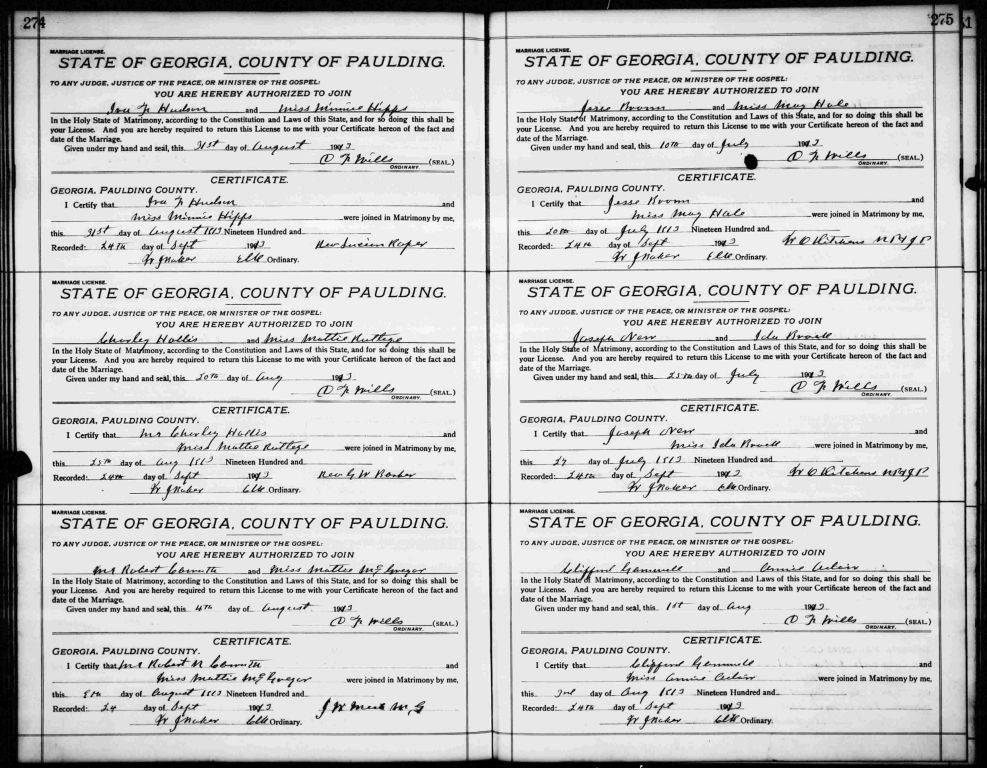 274
MARRIAGE LICENSE.
STATE OF GEORGIA, COUNTY OF PAULDING.
TO ANY JUDGE, JUSTICE OF THE PEACE, OR MINISTER OF THE GOSPEL:
YOU ARE HEREBY AUTHORIZED TO JOIN
Ira F Hudson and Miss Minnie Hipps
In the Holy State of Matrimony, according to the Constitution and Laws of this State, and for so doing this shall be
your License. And you are hereby required to return this License to me with your Certificate hereon of the fact and
date of the Marriage.
Given under my hand and seal, this 31st day of August 1913
Wills (SEAL.)
ORDINARY.
CERTIFICATE.
GEORGIA, PAULDING COUNTY.
I Certify that Ira F Hudson and
Miss Minnie Hipps were joined in Matrimony by me,
this 31st day of August 1913 Nineteen Hundred and
Recorded: 24th day of Sept 1913 Rev Lucien Roper
Clk Ordinary.
MARRIAGE LICENSE.
STATE OF GEORGIA, COUNTY OF PAULDING.
TO ANY JUDGE, JUSTICE OF THE PEACE, OR MINISTER OF THE GOSPEL:
YOU ARE HEREBY AUTHORIZED TO JOIN
Charley Hollis and Miss Mattie
In the Holy State of Matrimony, according to the Constitution and Laws of this State, and for so doing this shall be
your License. And you are hereby required to return this License to me with your Certificate hereon of the fact and
date of the Marriage.
Given under my hand and seal, this 20th day of Aug 1913
Wills (SEAL.)
ORDINARY.
CERTIFICATE.
GEORGIA, PAULDING COUNTY.
I Certify that Mr Charley Hollis and
Miss Mattie were joined in Matrimony by me,
this day of Aug 1913 Nineteen Hundred and
Recorded: 24th day of Sept 1913 Rev G W
Clk Ordinary.
MARRIAGE LICENSE.
STATE OF GEORGIA, COUNTY OF PAULDING.
TO ANY JUDGE, JUSTICE OF THE PEACE, OR MINISTER OF THE GOSPEL:
YOU ARE HEREBY AUTHORIZED TO JOIN
Mr Robert and Miss Mattie McGregor
In the Holy State of Matrimony, according to the Constitution and Laws of this State, and for so doing this shall be
your License. And you are hereby required to return this License to me with your Certificate hereon of the fact and
date of the Marriage.
Given under my hand and seal, this 4th day of August 1913
Wills (SEAL.)
ORDINARY.
CERTIFICATE.
GEORGIA, PAULDING COUNTY.
I Certify that Mr Robert and
Miss Mattie McGregor were joined in Matrimony by me,
this day of August 1913 Nineteen Hundred and
Recorded: 24 day of Sept 1913 J W M G
Clk Ordinary.
275
MARRIAGE LICENSE.
STATE OF GEORGIA, COUNTY OF PAULDING.
TO ANY JUDGE, JUSTICE OF THE PEACE, OR MINISTER OF THE GOSPEL:
YOU ARE HEREBY AUTHORIZED TO JOIN
Jesse and Miss May Hale
In the Holy State of Matrimony, according to the Constitution and Laws of this State, and for so doing this shall be
your License. And you are hereby required to return this License to me with your Certificate hereon of the fact and
date of the Marriage.
Given under my hand and seal, this 10th day of July 1913
Wills (SEAL.)
ORDINARY.
CERTIFICATE.
GEORGIA, PAULDING COUNTY.
I Certify that Jesse and
Miss May Hale were joined in Matrimony by me,
this 20th day of July 1913 Nineteen Hundred and
Recorded: 24th day of Sept 1913 W O Hitchens N P & J P
Clk Ordinary.
MARRIAGE LICENSE.
STATE OF GEORGIA, COUNTY OF PAULDING.
TO ANY JUDGE, JUSTICE OF THE PEACE, OR MINISTER OF THE GOSPEL:
YOU ARE HEREBY AUTHORIZED TO JOIN
Joseph New and Ida
In the Holy State of Matrimony, according to the Constitution and Laws of this State, and for so doing this shall be
your License. And you are hereby required to return this License to me with your Certificate hereon of the fact and
date of the Marriage.
Given under my hand and seal, this 25th day of July 1913
Wills (SEAL.)
ORDINARY.
CERTIFICATE.
GEORGIA, PAULDING COUNTY.
I Certify that Joseph New and
Miss Ida were joined in Matrimony by me,
this 27 day of July 1913 Nineteen Hundred and
Recorded: 24th day of Sept 1913 W O Hitchens N P & J P
Clk Ordinary.
MARRIAGE LICENSE.
STATE OF GEORGIA, COUNTY OF PAULDING.
TO ANY JUDGE, JUSTICE OF THE PEACE, OR MINISTER OF THE GOSPEL:
YOU ARE HEREBY AUTHORIZED TO JOIN
Clifford Gammell and Annie
In the Holy State of Matrimony, according to the Constitution and Laws of this State, and for so doing this shall be
your License. And you are hereby required to return this License to me with your Certificate hereon of the fact and
date of the Marriage.
Given under my hand and seal, this 1st day of Aug 1913
Wills (SEAL.)
ORDINARY.
CERTIFICATE.
GEORGIA, PAULDING COUNTY.
I Certify that Clifford Gammell and
Miss Annie were joined in Matrimony by me,
this 3rd day of Aug 1913 Nineteen Hundred and
Recorded: 24th day of Sept 1913
Clk Ordinary.